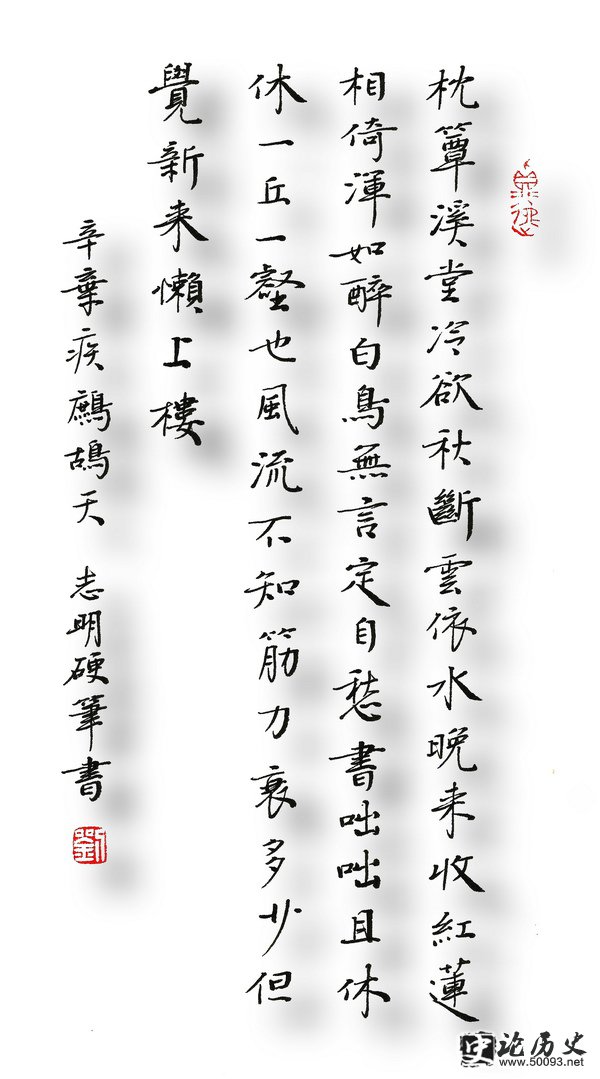 枕簟溪堂冷欲秋斷雲依水晚来收紅蓮
相倚渾如醉白鳥無言定自愁書咄咄且休
休一丘一壑也風流不知筋力衰多少但
覺新来懶上樓
辛棄疾鷓鴣天 志明硬筆書
劉
论历史
www.50093.net